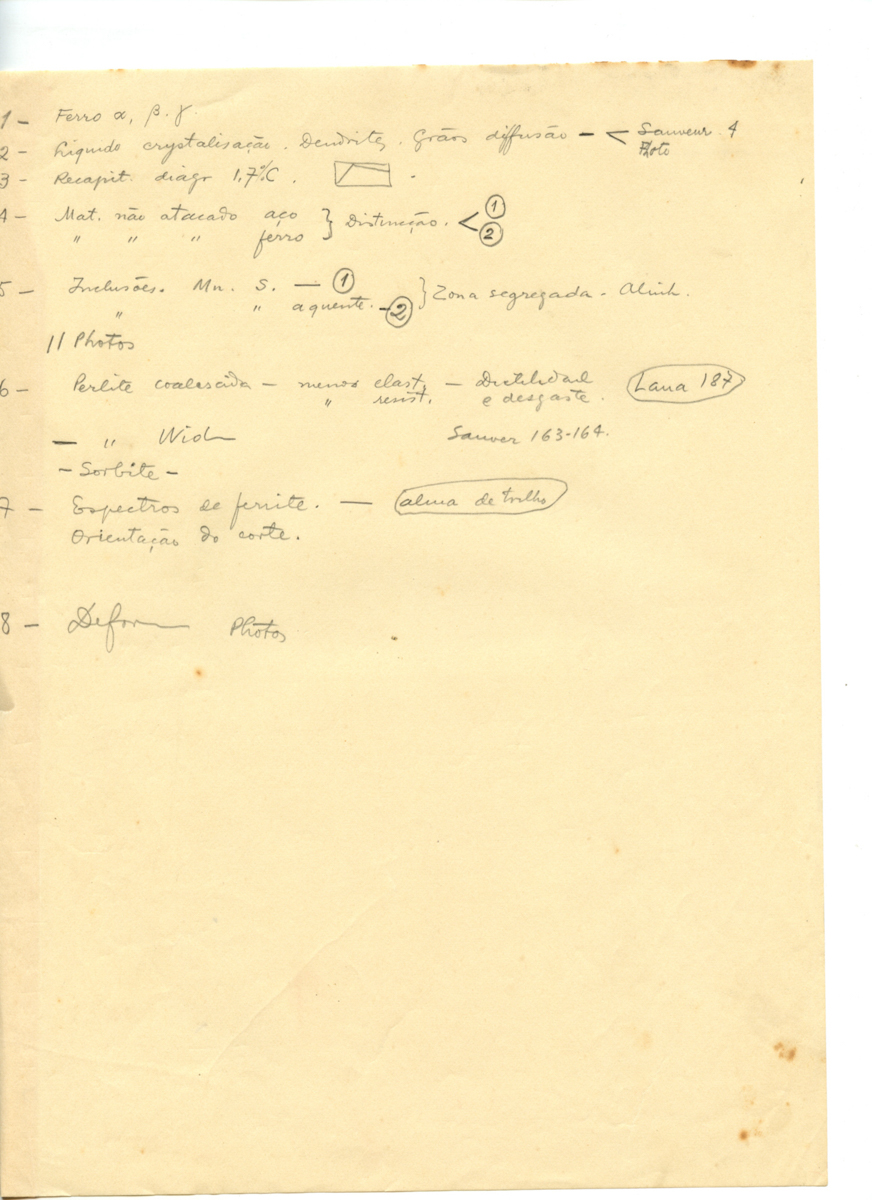 1 - Ferro α, β. γ.
2 - Liquido crystalisação. Dendrites. Grãos diffusão - < Sauveur 4
Photo
3 - Recapit. diagr 1,7%C. .
4 - Mat. não atacado aço } Distincção. < 1
" " " ferro 2
5 - Inclusões. Mn. S. — 1 } Zona segregada - Alinh.
" " a quente. - 2
11 Photos
6 - Perlite coalescida - menos elast. - Ductilidad
" resist. e desgaste. Lana 187
— " Wid
Sauver 163-164.
- Sorbite -
7 - Espectros de ferrite. — alma de trilho
Orientação do corte.
8 - Deform
Photos